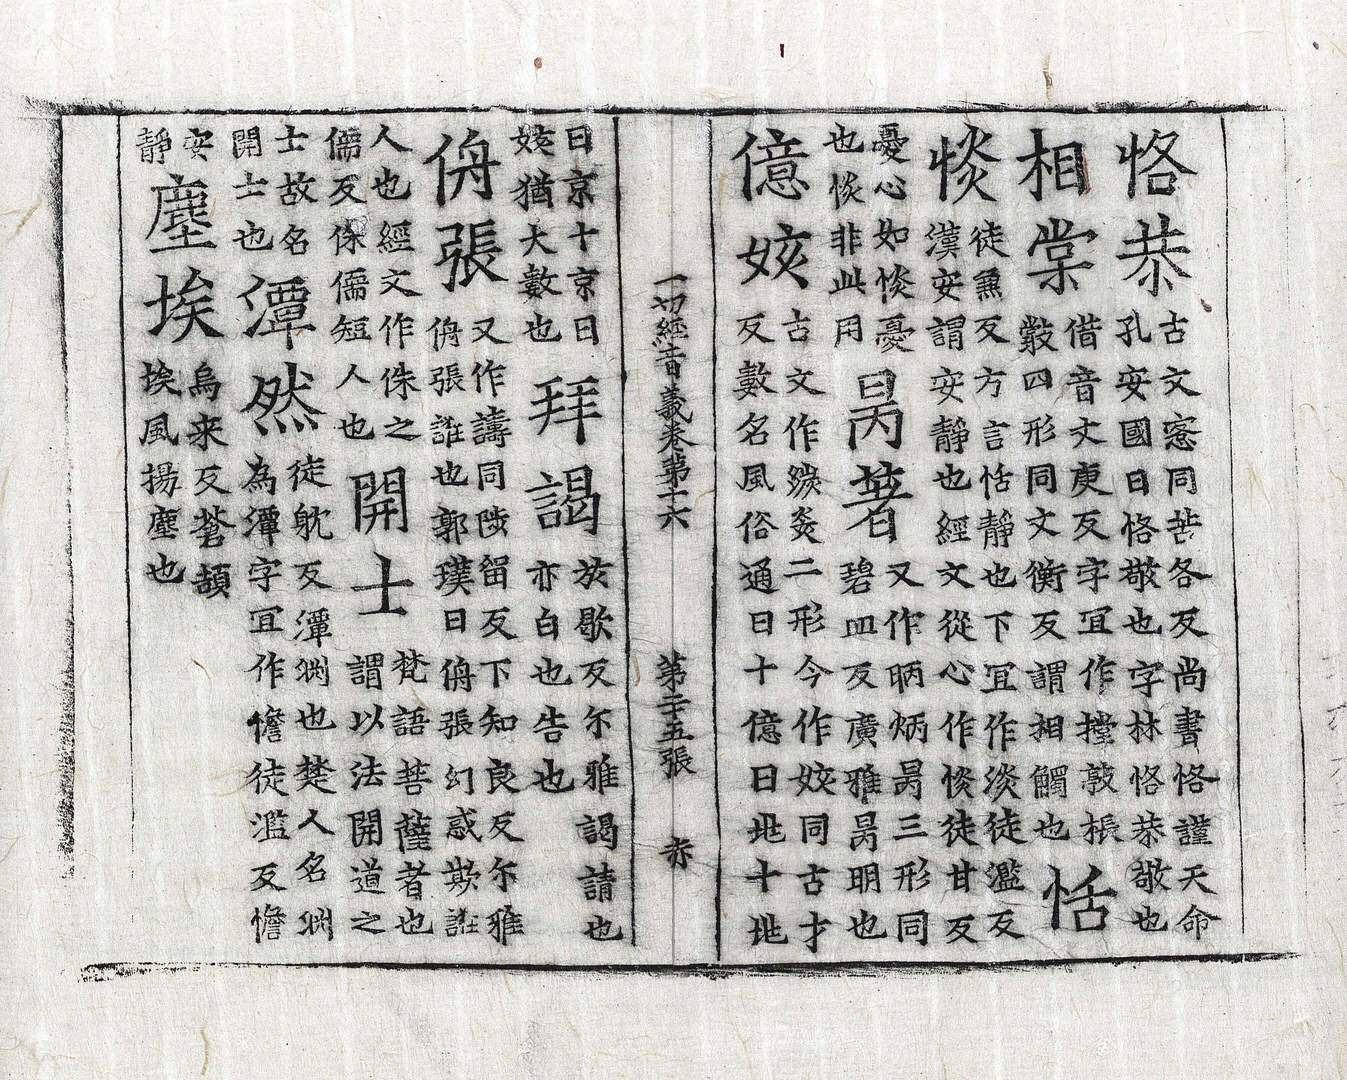 恪恭
古文愙同苦各反尚書恪謹天命
孔安國曰恪敬也字林恪恭敬也
相棠
借音丈庚反字冝作摚敦棖
四形同丈衡反謂相觸也
恬
惔
徒兼反方言恬靜也下冝作淡徒濫反
漢安謂安靜也經文從心作惔徒甘反
憂心如惔憂
也惔非此用
昺著
又作昞炳昺三形同
碧皿反廣雅昺明也
億姟
古文作二形今作姟同古才
反數名風俗通曰十億曰兆十兆
一切經音義卷第十六 第二十五張 赤
曰京十京曰
姟猶大數也
拜謁
於歇反尒雅謁請也
亦白也告也
侜張
又作譸同陟留反下知良反尒雅
侜張誑也郭璞曰侜張幻惑欺誑
人也經文作侏之
儒反侏儒短人也
開士
梵語菩薩者也
謂以法開道之
士故名
開士也
潭然
徒躭反潭渊也楚人名渊
為潭字冝作憺徒濫反憺
安
靜
塵埃
烏来反蒼頡
埃風揚塵也